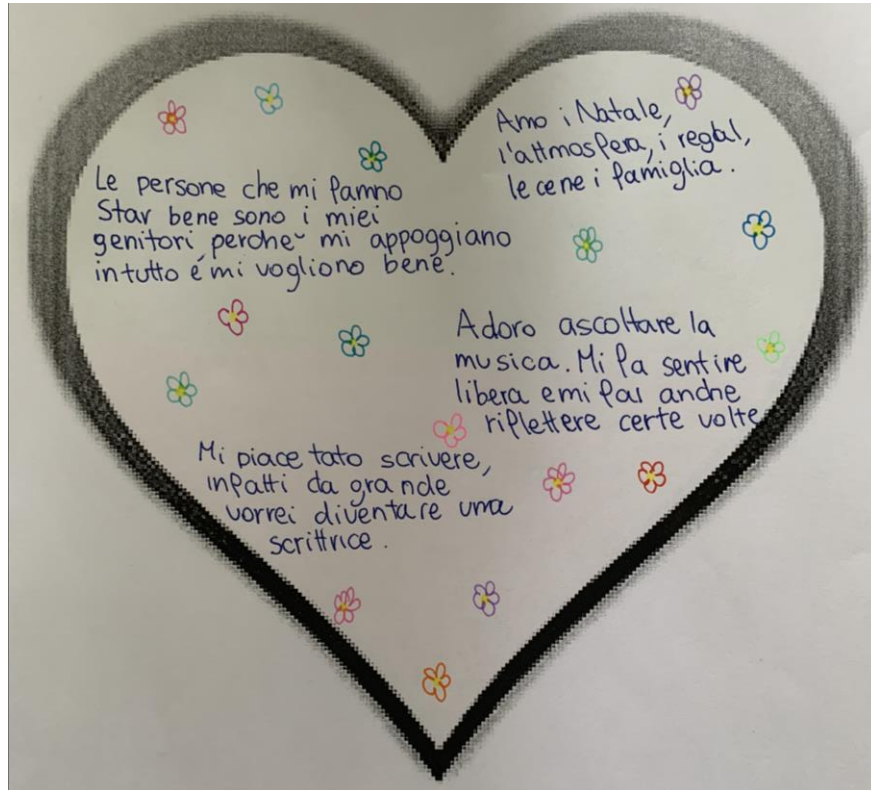 Le persone che mi fanno
Star bene sono i miei
genitori, perche mi appoggiano
in tutto é mi vogliono bene.
Amo i Natale,
l'attmosfera, i regal,
le cene i famiglia.
Adoro ascoltare la
musica. Mi fa sentire
libera e mi fai anche
riflettere certe volte
Mi piace tato scrivere,
infatti da grande
vorrei diventare una
scrittrice.